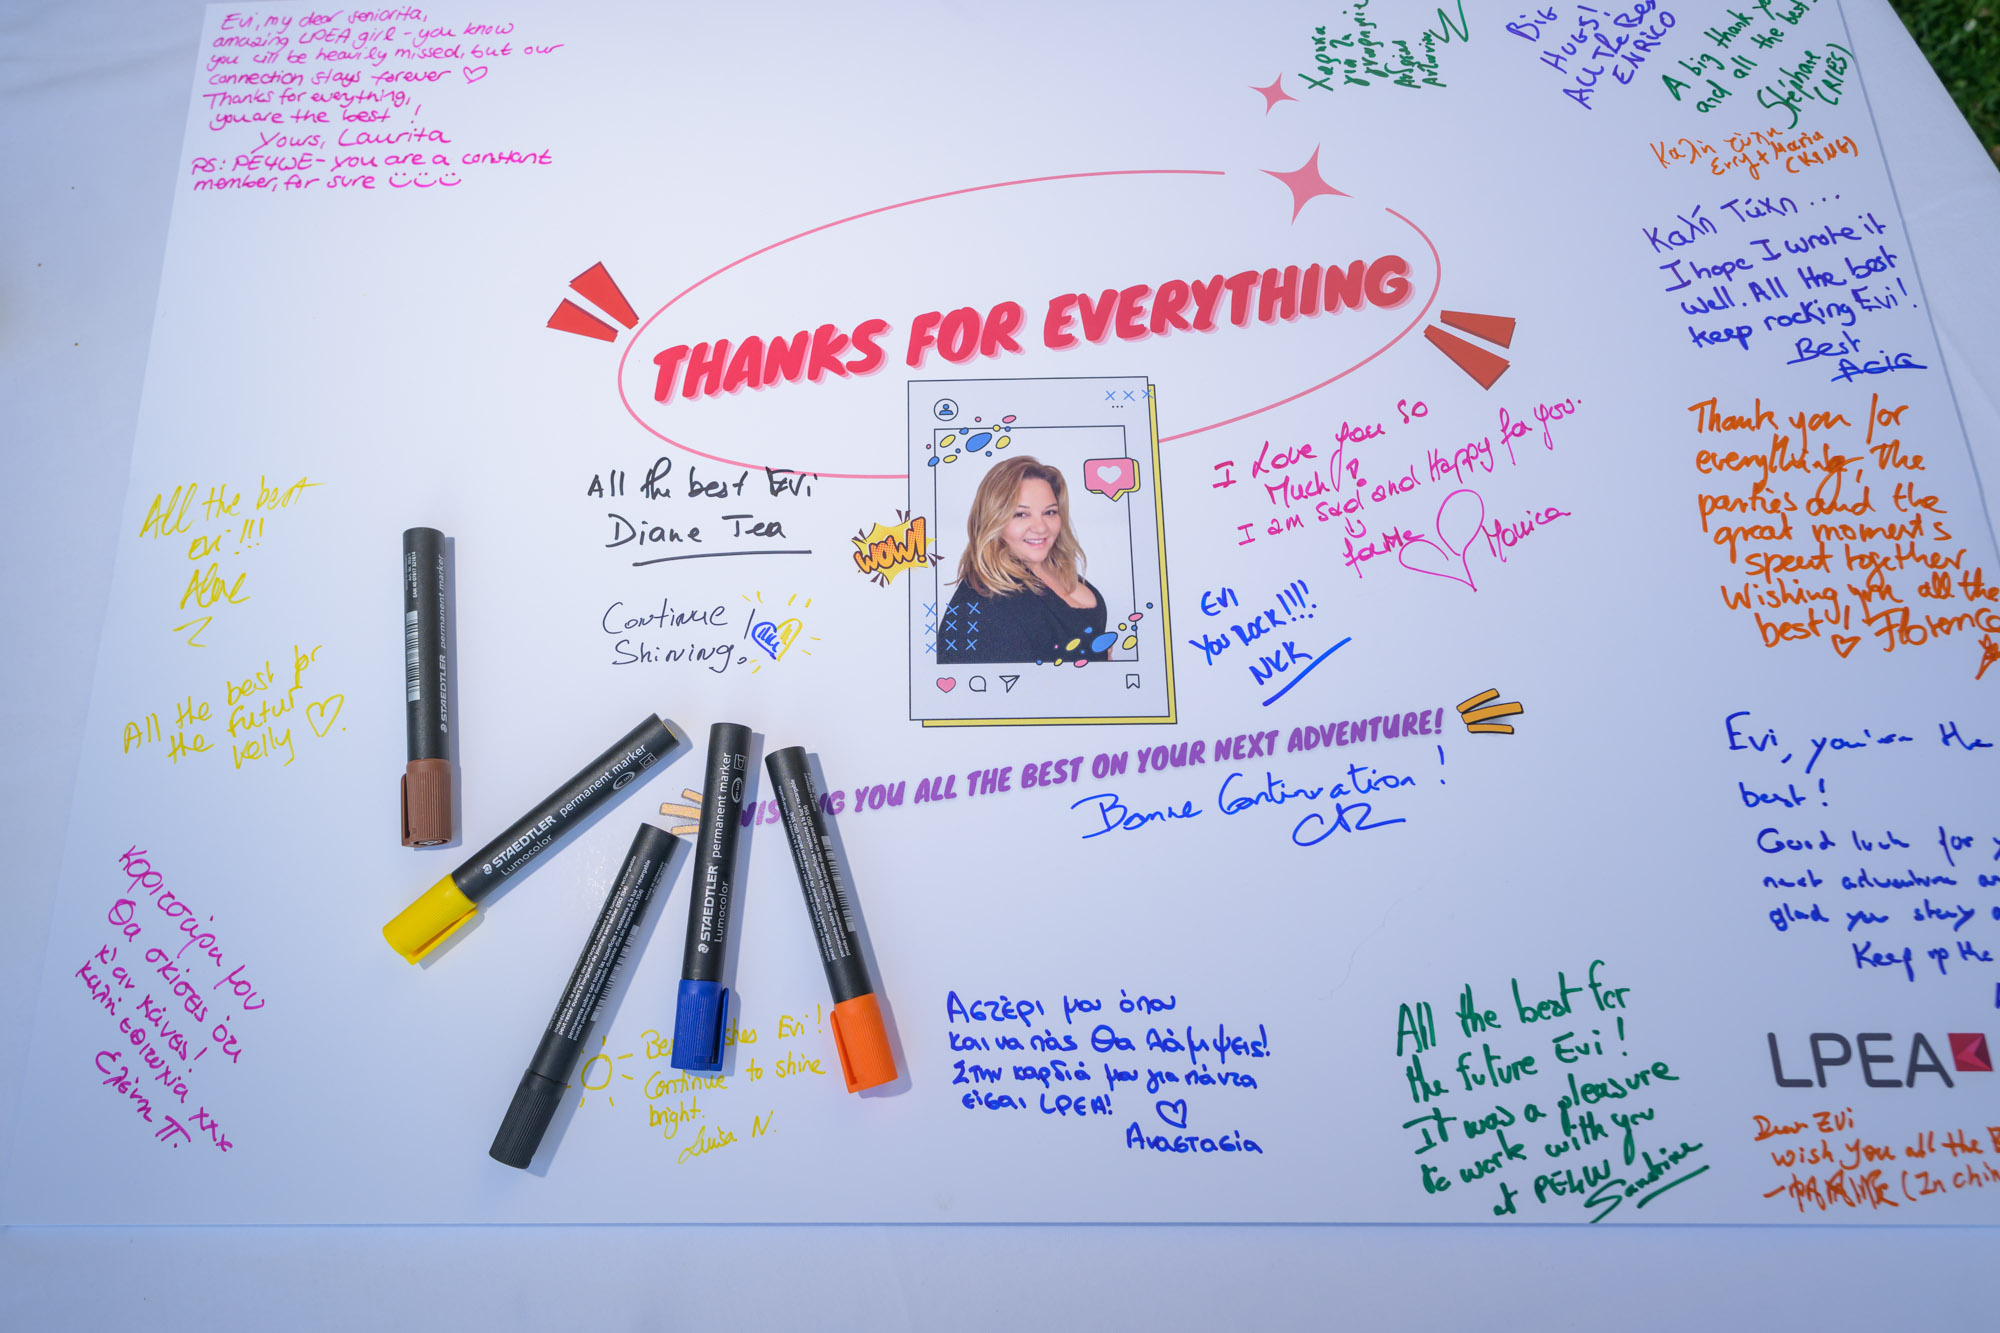 Evi, my dear seniorita,
amazing LPEA girl - you know
you will be heavily missed, but our
connection stays forever ♡
Thanks for everything,
you are the best !
Yours, Laurita
PS: PE4WE - you are a constant
member, for sure
Χαρηκα
για τη
γνωριμια
BIG
HUGS!
All The Best
ENRICO
A big thank you
and all the best!
Stéphane
Καλη τυχη
Evry + Maria
Καλή Τύχη ...
I hope I wrote it
well. All the best
keep rocking Evi!
Best
THANKS FOR EVERYTHING
WOW!
All the best Evi
Diane Tea
Continue
Shining!
I Love you So
Much!
I am sad and Happy for you.
Monica
EVI
YOU ROCK!!!!
NICK
Thank you for
everything, the
parties and the
great moments
spent together
Wishing you all the
best! ♡ Florence
All the best
Evi!!!
All the best for
the futur
Kelly ♡.
WISHING YOU ALL THE BEST ON YOUR NEXT ADVENTURE!
Bonne Continuation !
Evi, you're the
best!
Good luck for
next adventure
glad you stay
Keep up the
STAEDTLER permanent marker
STAEDTLER permanent marker
Lumocolor
STAEDTLER permanent marker
Lumocolor
Κοριτσάρα μου
Θα σκίσεις ότι
κι αν κάνεις!
καλή επιτυχία xxx
Ελένη Π.
Best wishes Evi!
Continue to shine
bright.
Luisa N.
Αστέρι μου όπου
και να πας Θα λάμψεις!
Στην καρδιά μου για πάντα
είσαι LPEA!
♡
Αναστασία
All the best for
the future Evi!
It was a pleasure
to work with you
at PE4W
Sandrine
LPEA
Dear EVI
Wish you all the
(In Chin